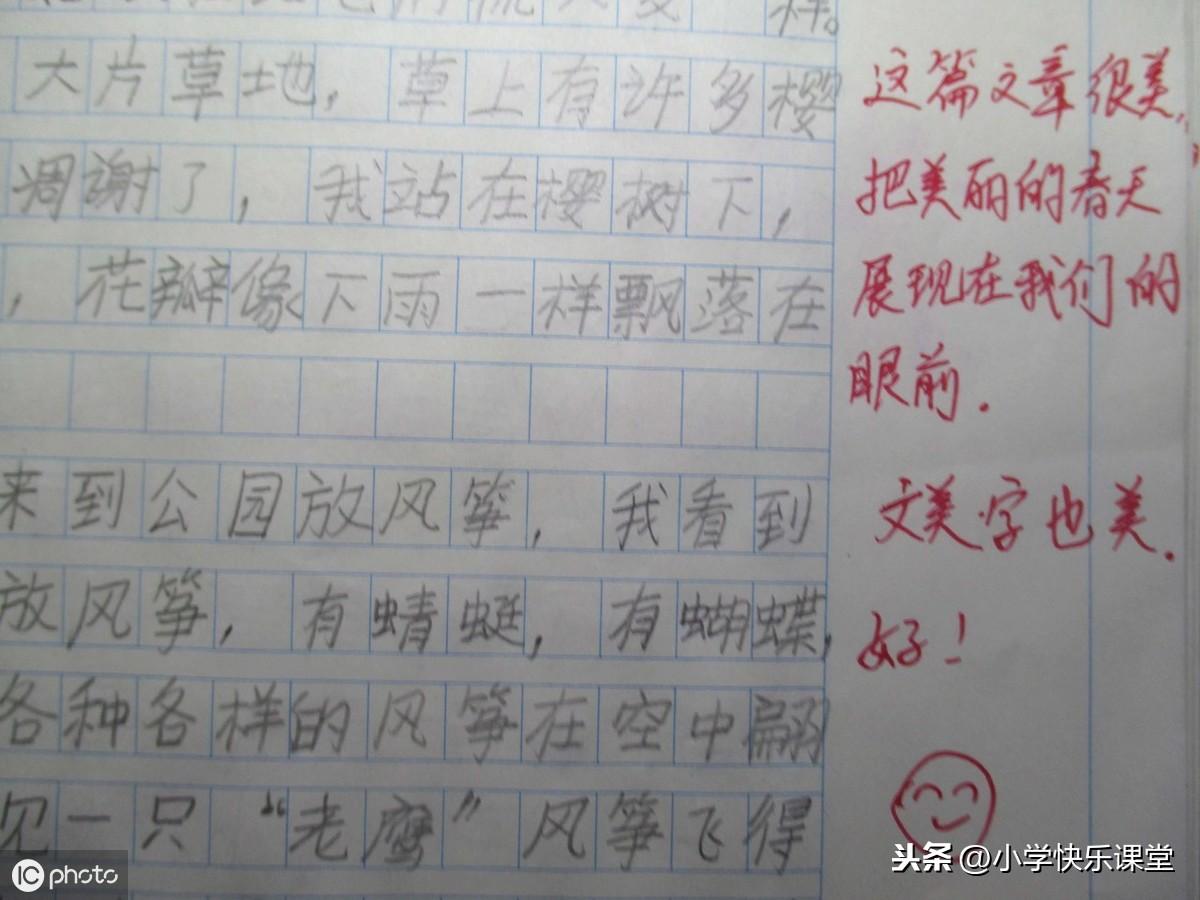 大片草地，草上有许多樱
凋谢了，我站在樱树下，
，花瓣像下雨一样飘落在
来到公园放风筝，我看到
放风筝，有蜻蜓，有蝴蝶，
各种各样的风筝在空中翩
见一只“老鹰”风筝飞得
这篇文章很美，
把美丽的春天
展现在我们的
眼前.
文美字也美.
好！
iC photo
头条 @小学快乐课堂